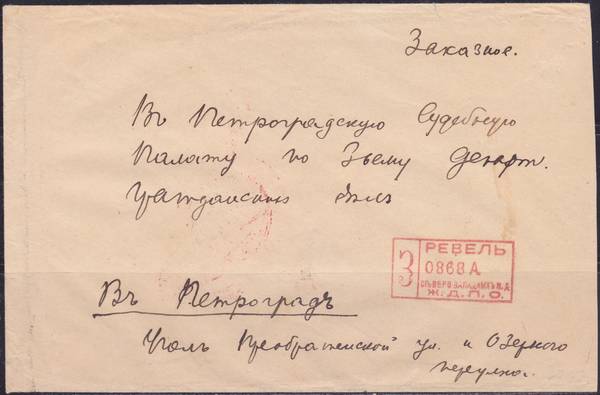 Заказное.
Въ Петроградскую Судебную
Палату по 3ьему Департ.
Гражданскихъ дѣлъ
РЕВЕЛЬ
З
0868 А
СѢВЕРО ЗАПАДНЫХЪ Ж.Д.
Ж.Д.П.О.
Въ Петроградъ
Уголъ Преображенской ул. и Озерного
переулка.